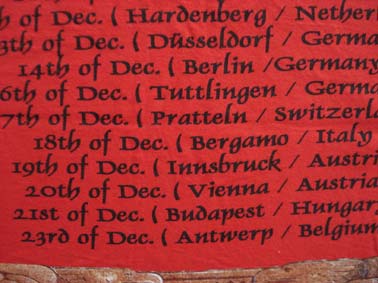 h of Dec. ( Hardenberg / Nether
3th of Dec. ( Düsseldorf / Germa
14th of Dec. ( Berlin / Germany
6th of Dec. ( Tuttlingen / Germa
7th of Dec. ( Pratteln / Switzerla
18th of Dec. ( Bergamo / Italy
19th of Dec. ( Innsbruck / Austri
20th of Dec. ( Vienna / Austria
21st of Dec. ( Budapest / Hungar
23rd of Dec. ( Antwerp / Belgium